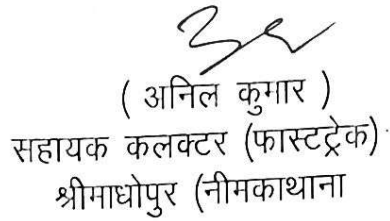 ( अनिल कुमार )
सहायक कलक्टर (फास्टट्रेक)
श्रीमाधोपुर (नीमकाथाना